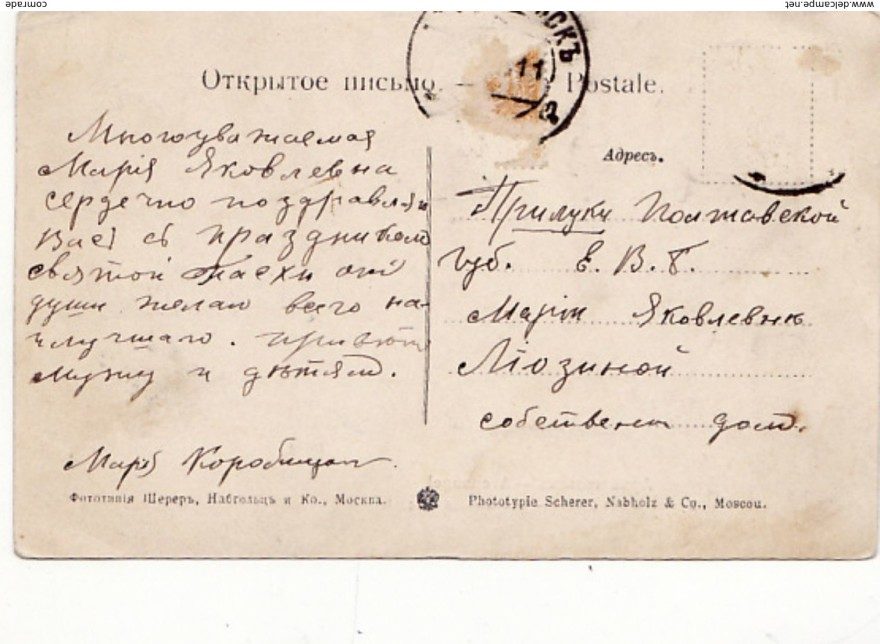 comrade
www.delcampe.net
СКЪ
11
Открытое письмо. — Postale.
Многоуважаемая
Марія Яковлевна
сердечно поздравляю
Васъ съ праздником
святой Пасхи от
души желаю всего на-
илучшаго. привѣт
мужу и дѣтям.
Марія
Адресъ.
Прилуки Полтавской
губ. Е. В. Б.
Маріи Яковлевнѣ
Ліозиной
собствен. дом.
Фототипія Шереръ, Набгольцъ и Ко., Москва.
Phototypie Scherer, Nabholz & Co., Moscou.